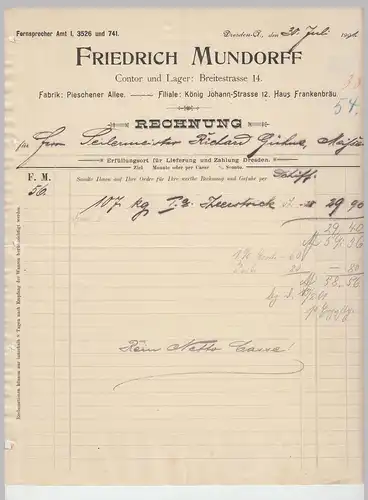 Fernsprecher Amt I, 3526 und 741.
Dresden-A., den 20. Juli 190
FRIEDRICH MUNDORFF
Contor und Lager: Breitestrasse 14.
Fabrik: Pieschener Allee. Filiale: König Johann-Strasse 12, Haus Frankenbräu.
54.
RECHNUNG
für Herrn Seilermeister Richard
Erfüllungsort für Lieferung und Zahlung Dresden.
Ziel Monate oder per Casse % Sconto.
F. M. Sandte Ihnen auf Ihre Order für Ihre werthe Rechnung und Gefahr per Schiff.
56. 107 kg 29 90
29 40
80
M 58.56
Kein Netto Casse!
Reclamationen können nur innerhalb 8 Tagen nach Empfang der Waaren berücksichtigt werden.